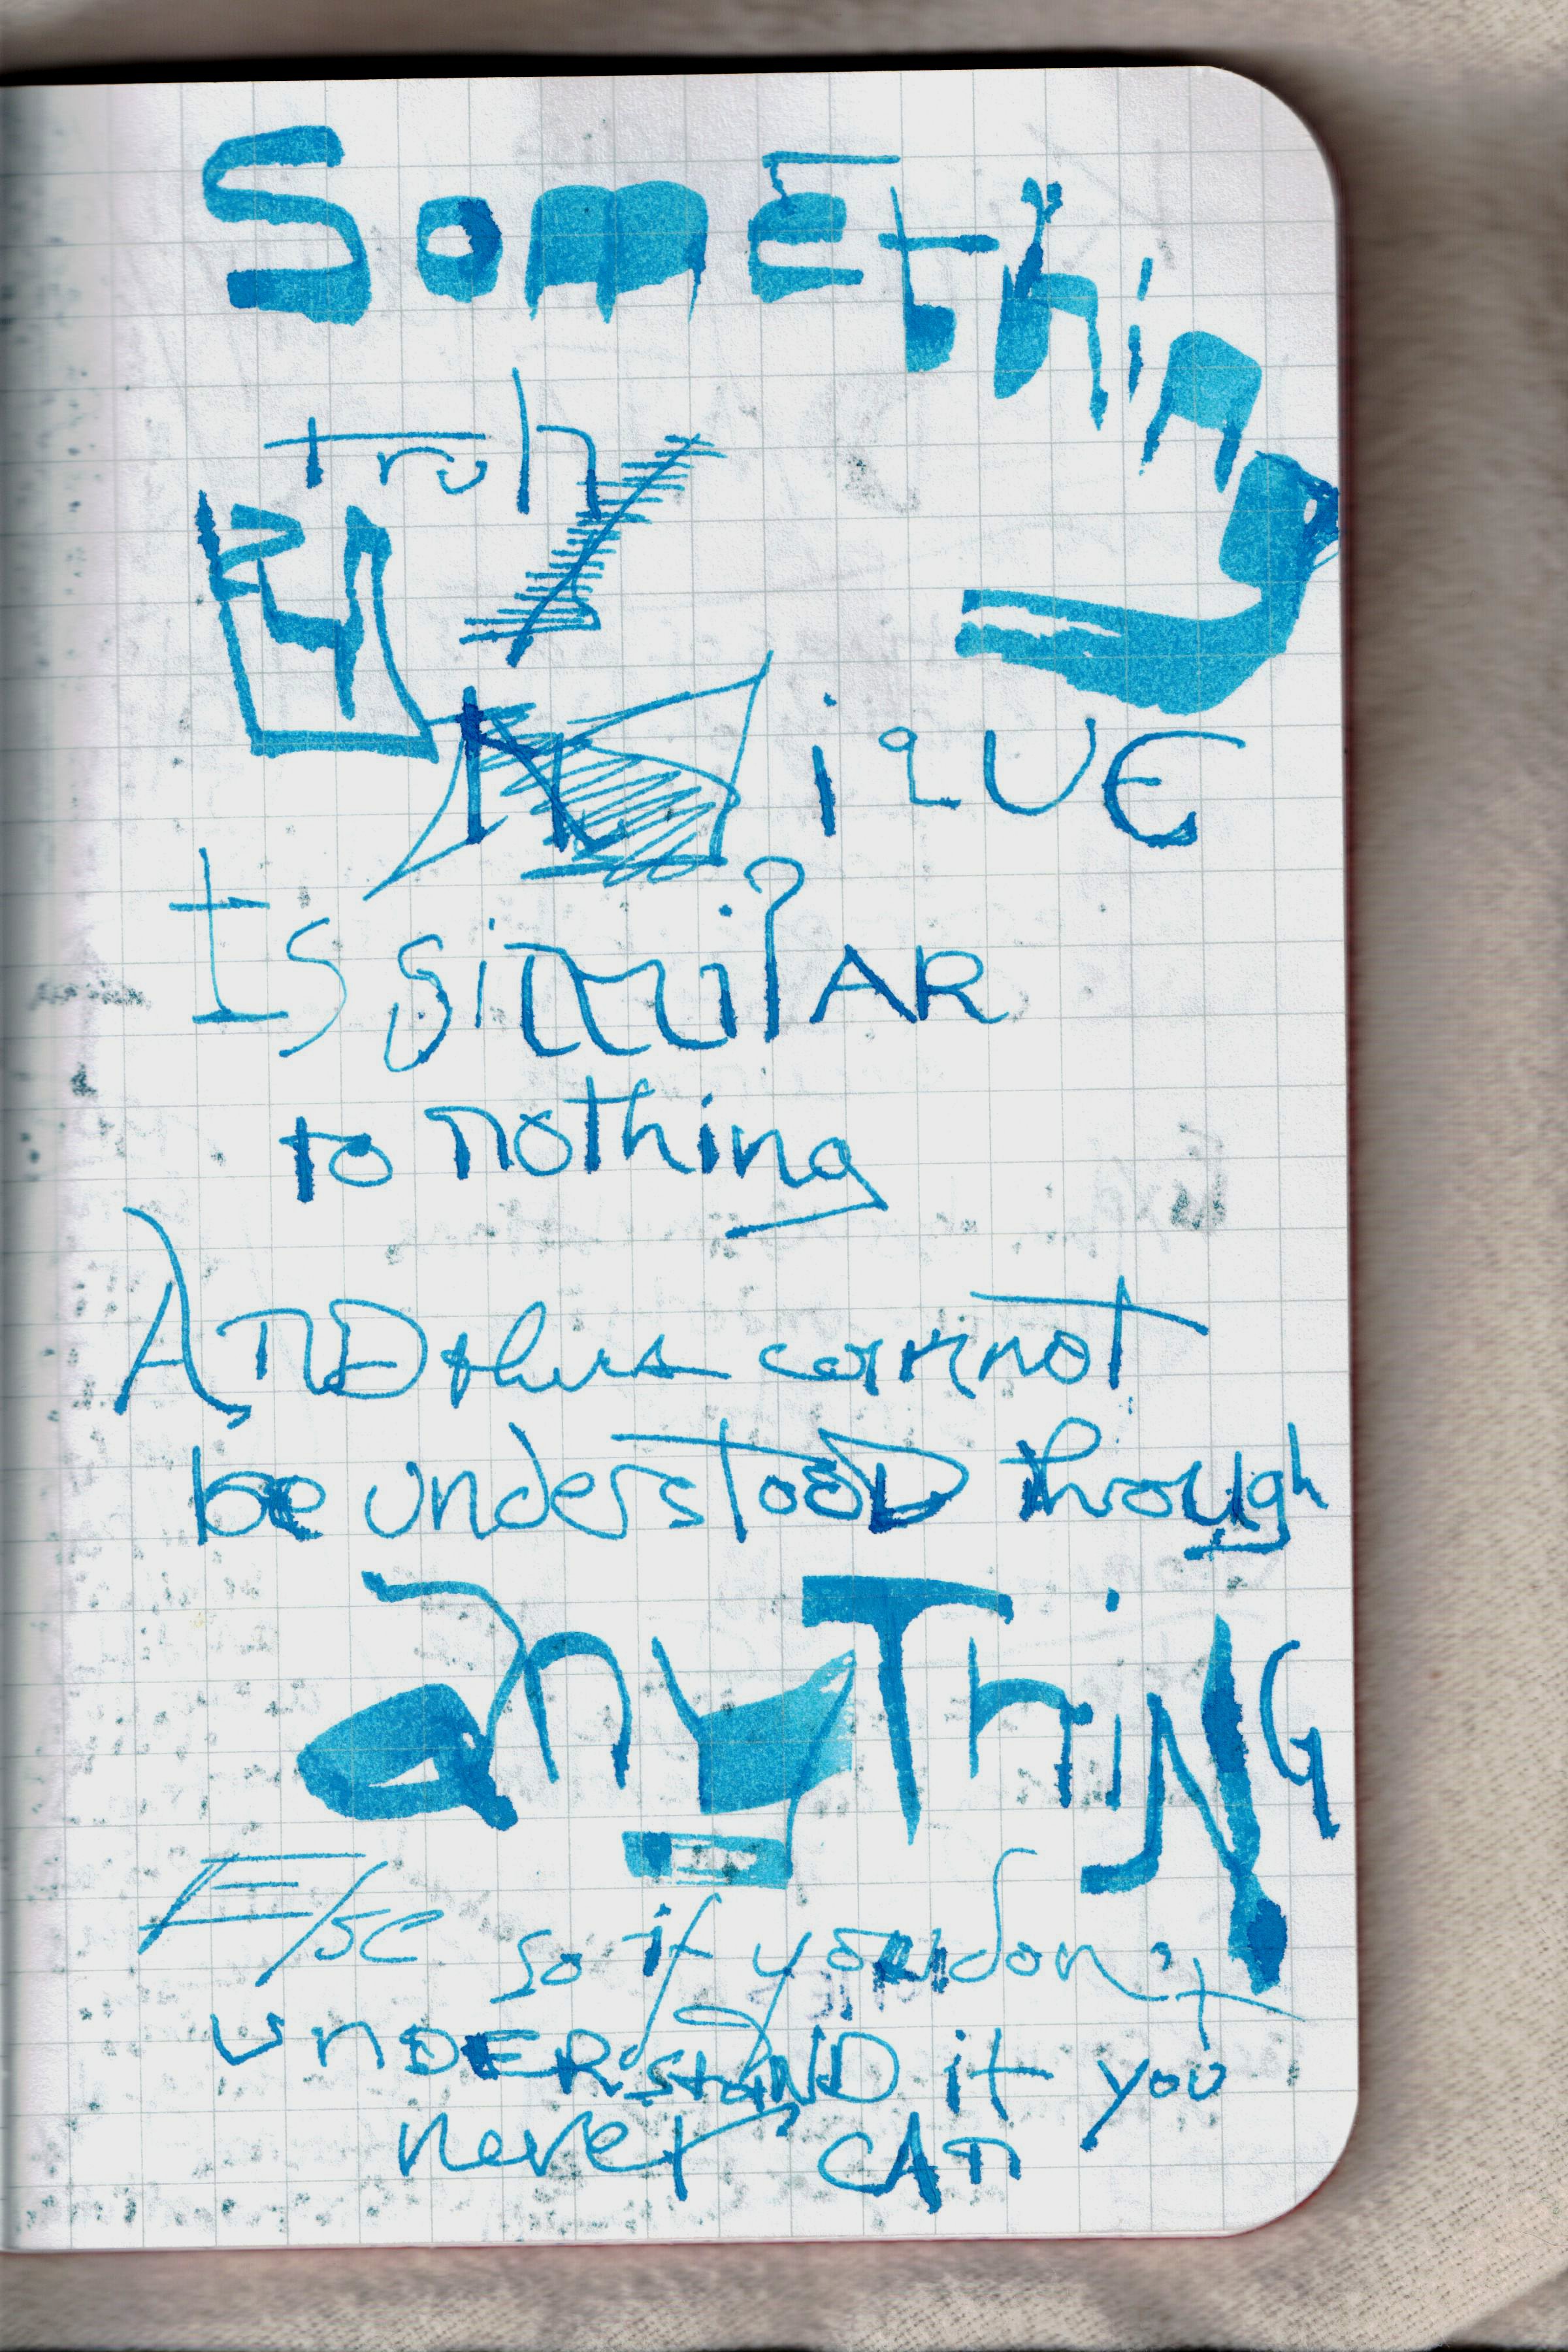 SomEthing
Truly
UNiqUE
Is similAR
to nothing
AnD thus cannot
be understooD through
anyThiNG
Else so if you don't
unDERstaND it you
never CAn